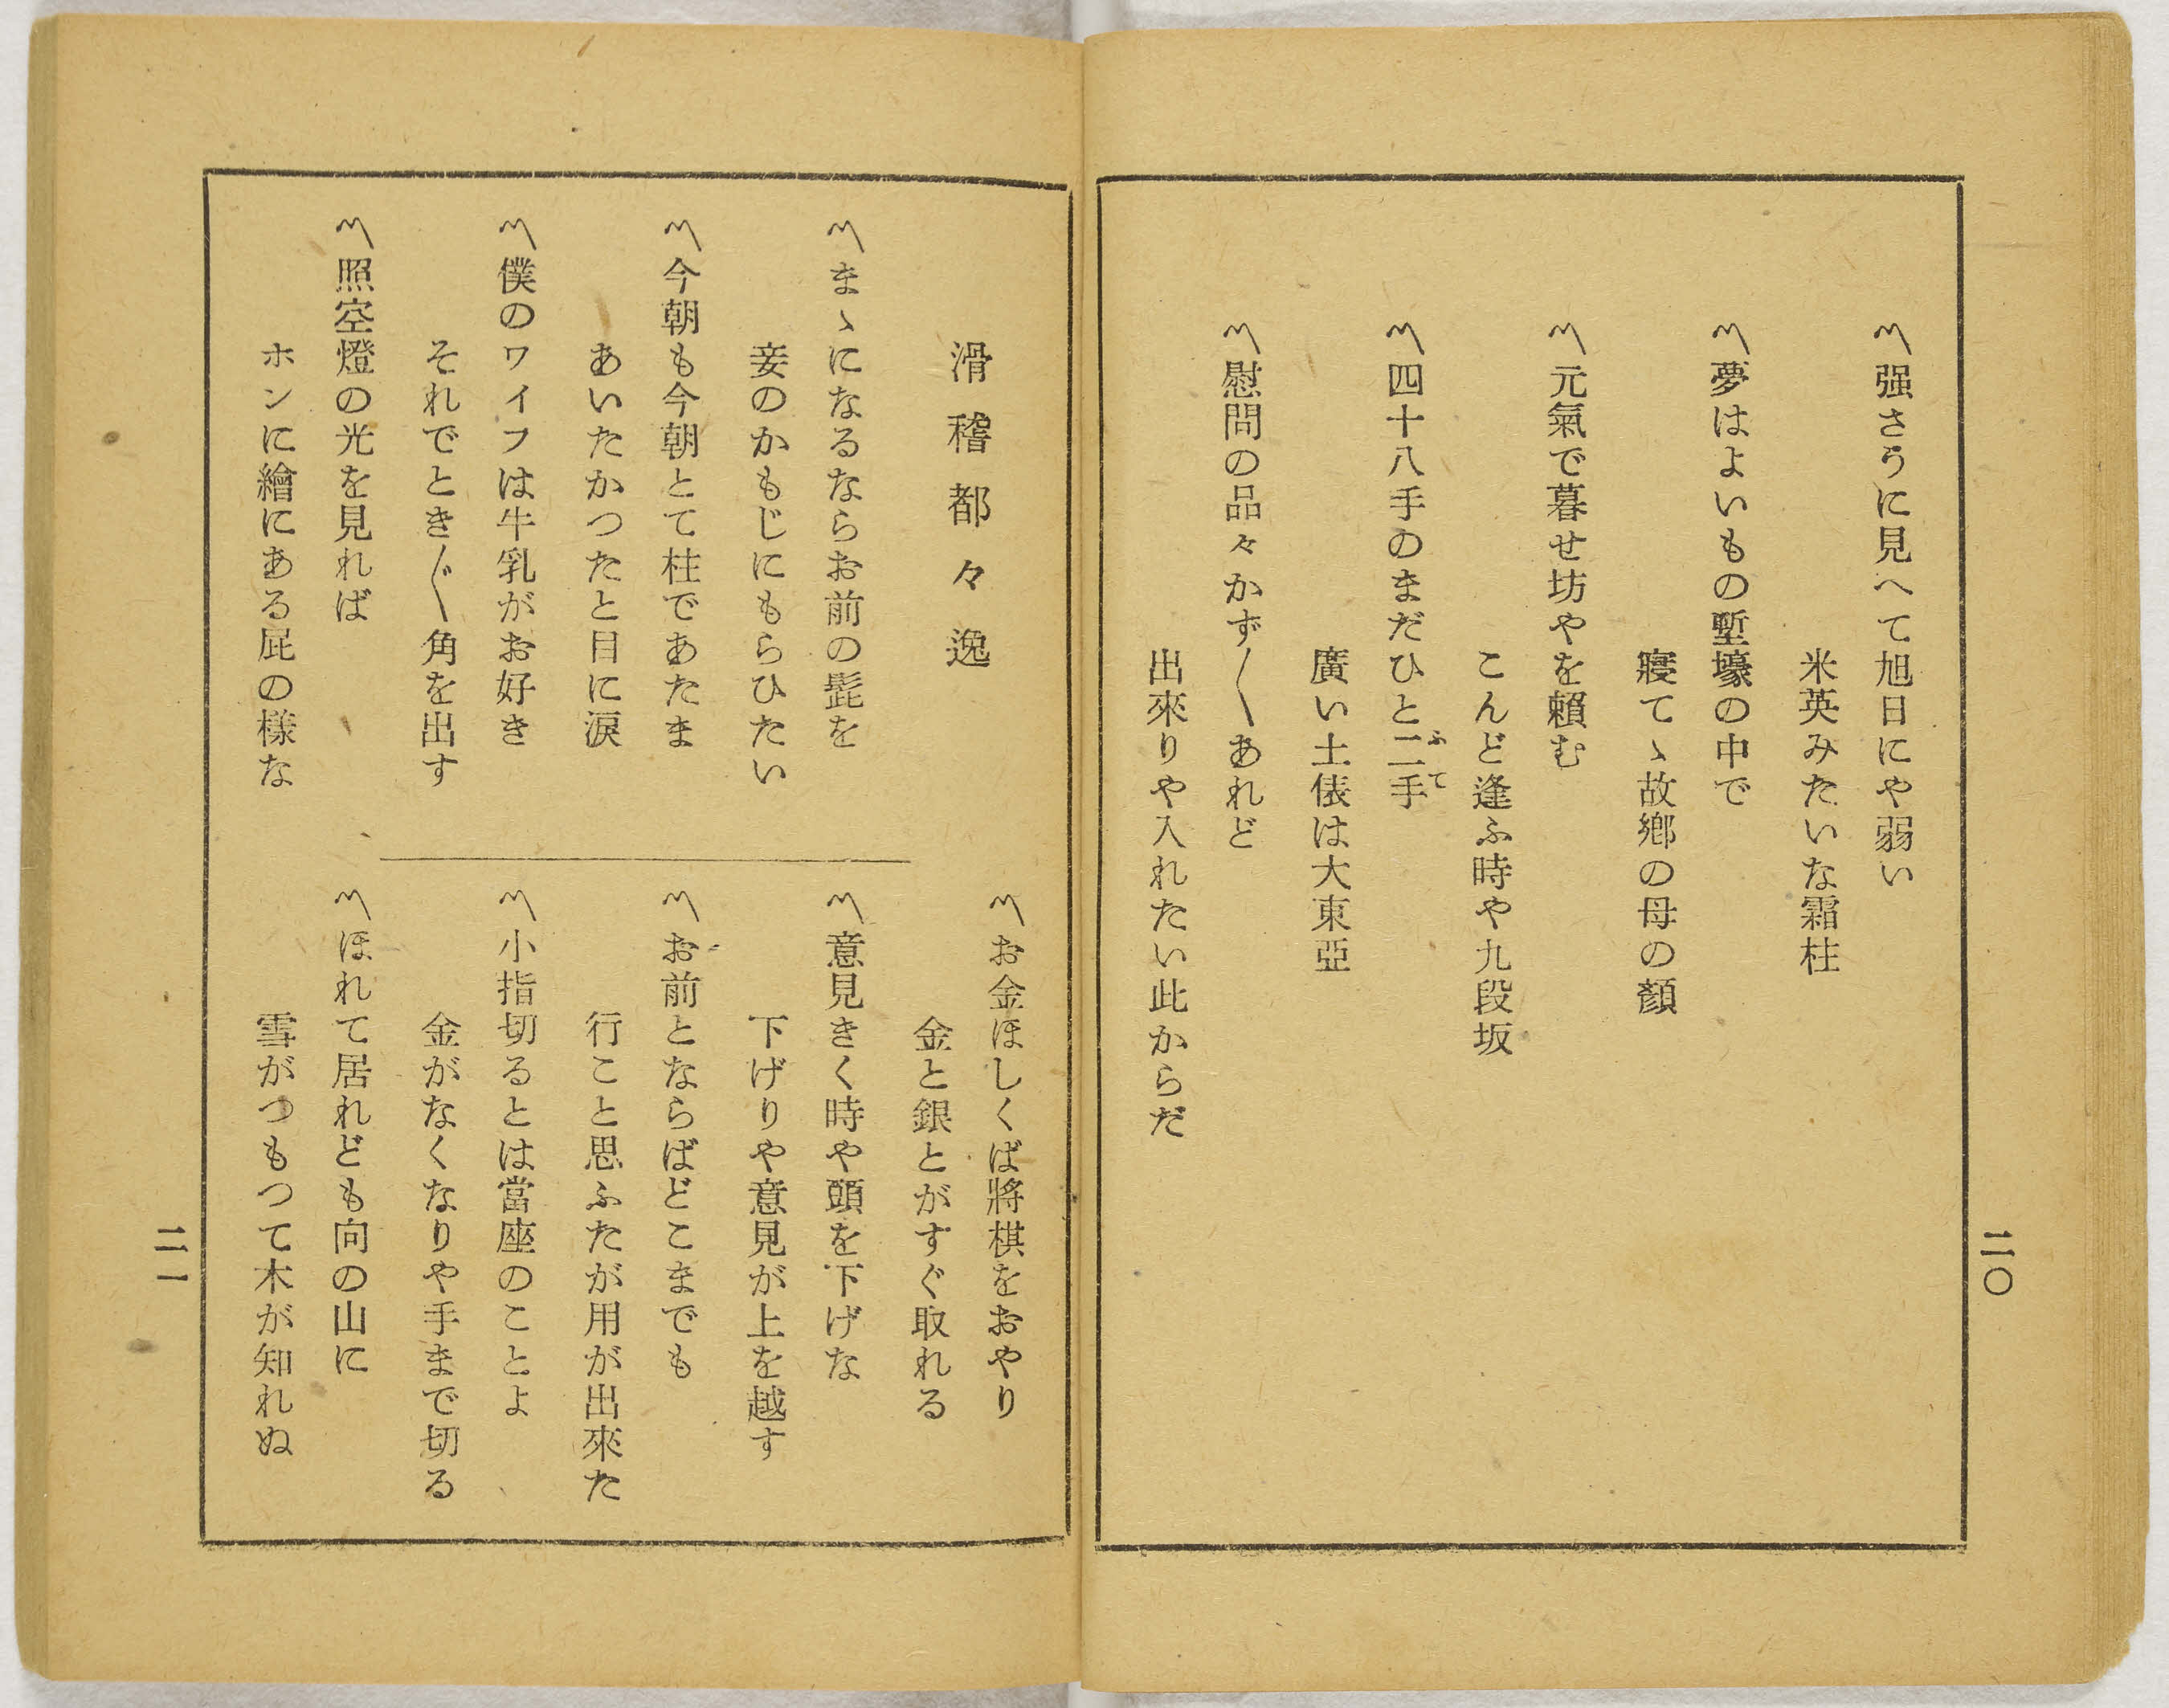 〽强さうに見へて旭日にや弱い
米英みたいな霜柱
〽夢はよいもの塹壕の中で
寢てゝ故鄕の母の顏
〽元氣で暮せ坊やを賴む
こんど逢ふ時や九段坂
〽四十八手のまだひと二手
ふて
廣い土俵は大東亞
〽慰問の品々かず〳〵あれど
出來りや入れたい此からだ
二〇
滑稽都々逸
〽まゝになるならお前の髭を
妾のかもじにもらひたい
〽今朝も今朝とて柱であたま
あいたかつたと目に淚
〽僕のワイフは牛乳がお好き
それでとき〴〵角を出す
〽照空燈の光を見れば
ホンに繪にある屁の樣な
〽お金ほしくば將棋をおやり
金と銀とがすぐ取れる
〽意見きく時や頭を下げな
下げりや意見が上を越す
〽お前とならばどこまでも
行こと思ふたが用が出來た
〽小指切るとは當座のことよ
金がなくなりや手まで切る
〽ほれて居れども向の山に
雪がつもつて木が知れぬ
二一